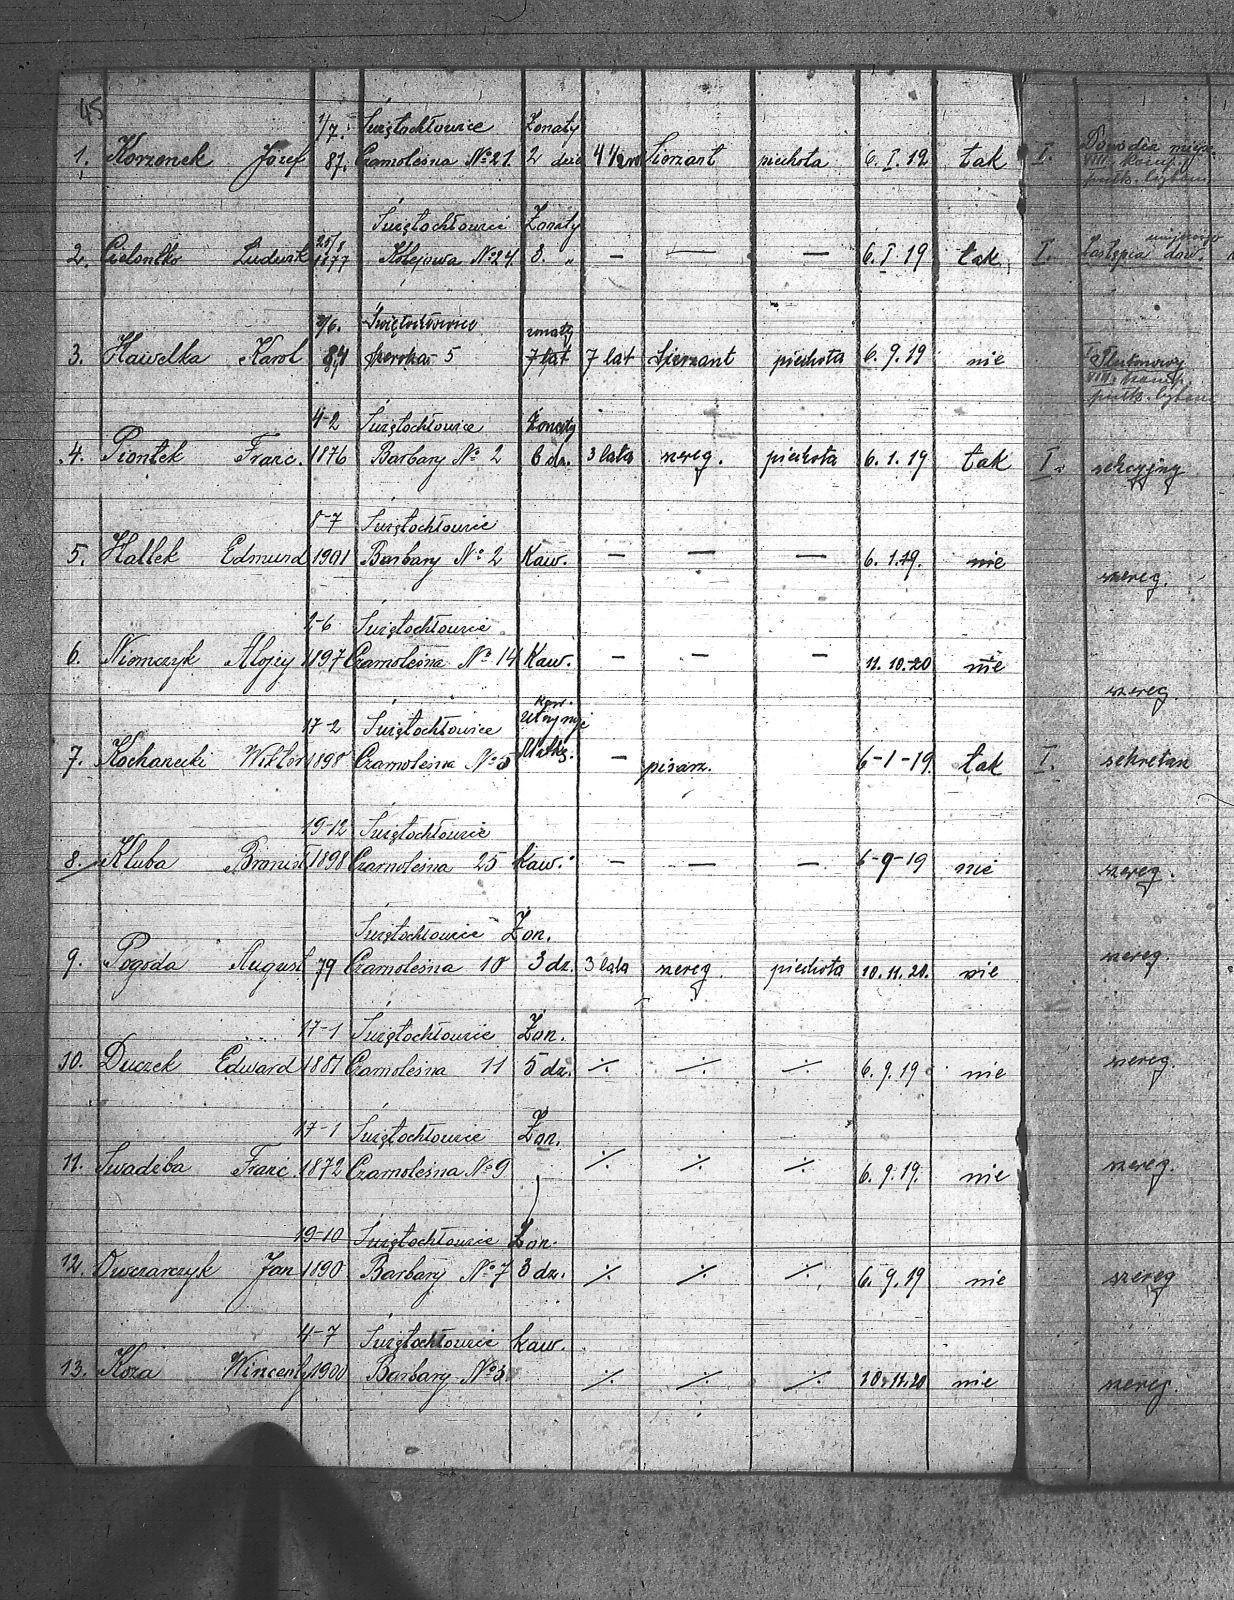 45
1/7. Świętochłowice Żonaty
1. Korzonek Józef 87. Czarnoleśna № 21. 2 dzieci 4 1/2 r. Sierżant piechota 6. I. 19 tak I. Dowódca miejsc.
VIII. komp.
pułk. bytom.
25/8 Świętochłowice Żonaty miejscowego
2. Cielontko Ludwik 1877 Kolejowa № 24. 3. „ — — — 6. I. 19 tak I. Zastępca dow.
2/6. Świętochłowice żonaty
3. Hawelka Karol 84 szeroka 5 7 lat 7 lat Sierżant piechota 6. 9. 19 nie Plutonowy
VIII. komp.
pułk. bytom.
4-2 Świętochłowice Żonaty
4. Piontek Franc. 1876 Barbary № 2 6 dz. 3 lata szereg. piechota 6. 1. 19 tak I. sekcyjny
8-7 Świętochłowice
5. Hallek Edmund 1901 Barbary № 2 Kaw. — — — 6. 1. 19. nie szereg.
2-6 Świętochłowice
6. Niemczyk Alojzy 1897 Czarnoleśna № 14 Kaw. — — — 11. 10. 20 nie szereg.
kaw.
17-2 Świętochłowice utrzymuje
7. Kochanecki Wiktor 1898 Czarnoleśna № 5 Matkę. — pisarz. 6-1-19. tak I. sekretarz
19-12 Świętochłowice
8. Kluba Bronisł 1898 Czarnoleśna 25 kaw. — — — 6-9-19 nie szereg.
Świętochłowice Żon.
9. Pogoda August 79 Czarnoleśna 10 3 dz. 3 lata szereg. piechota 10. 11. 20. nie szereg.
17-1 Świętochłowice Żon.
10. Duczek Edward 1881 Czarnoleśna 11 5 dz. ·/. ·/. ·/. 6. 9. 19 nie szereg.
17-1 Świętochłowice Żon.
11. Swadźba Franc. 1872 Czarnoleśna № 9 ·/. ·/. ·/. 6. 9. 19. nie szereg.
19-10 Świętochłowice Żon.
12. Owczarczyk Jan 1890 Barbary № 7 3 dz. ·/. ·/. ·/. 6. 9. 19 nie szereg
4-7 Świętochłowice kaw.
13. Koza Wincenty 1900 Barbary № 3 ·/. ·/. ·/. 10. 11. 20 nie szereg.